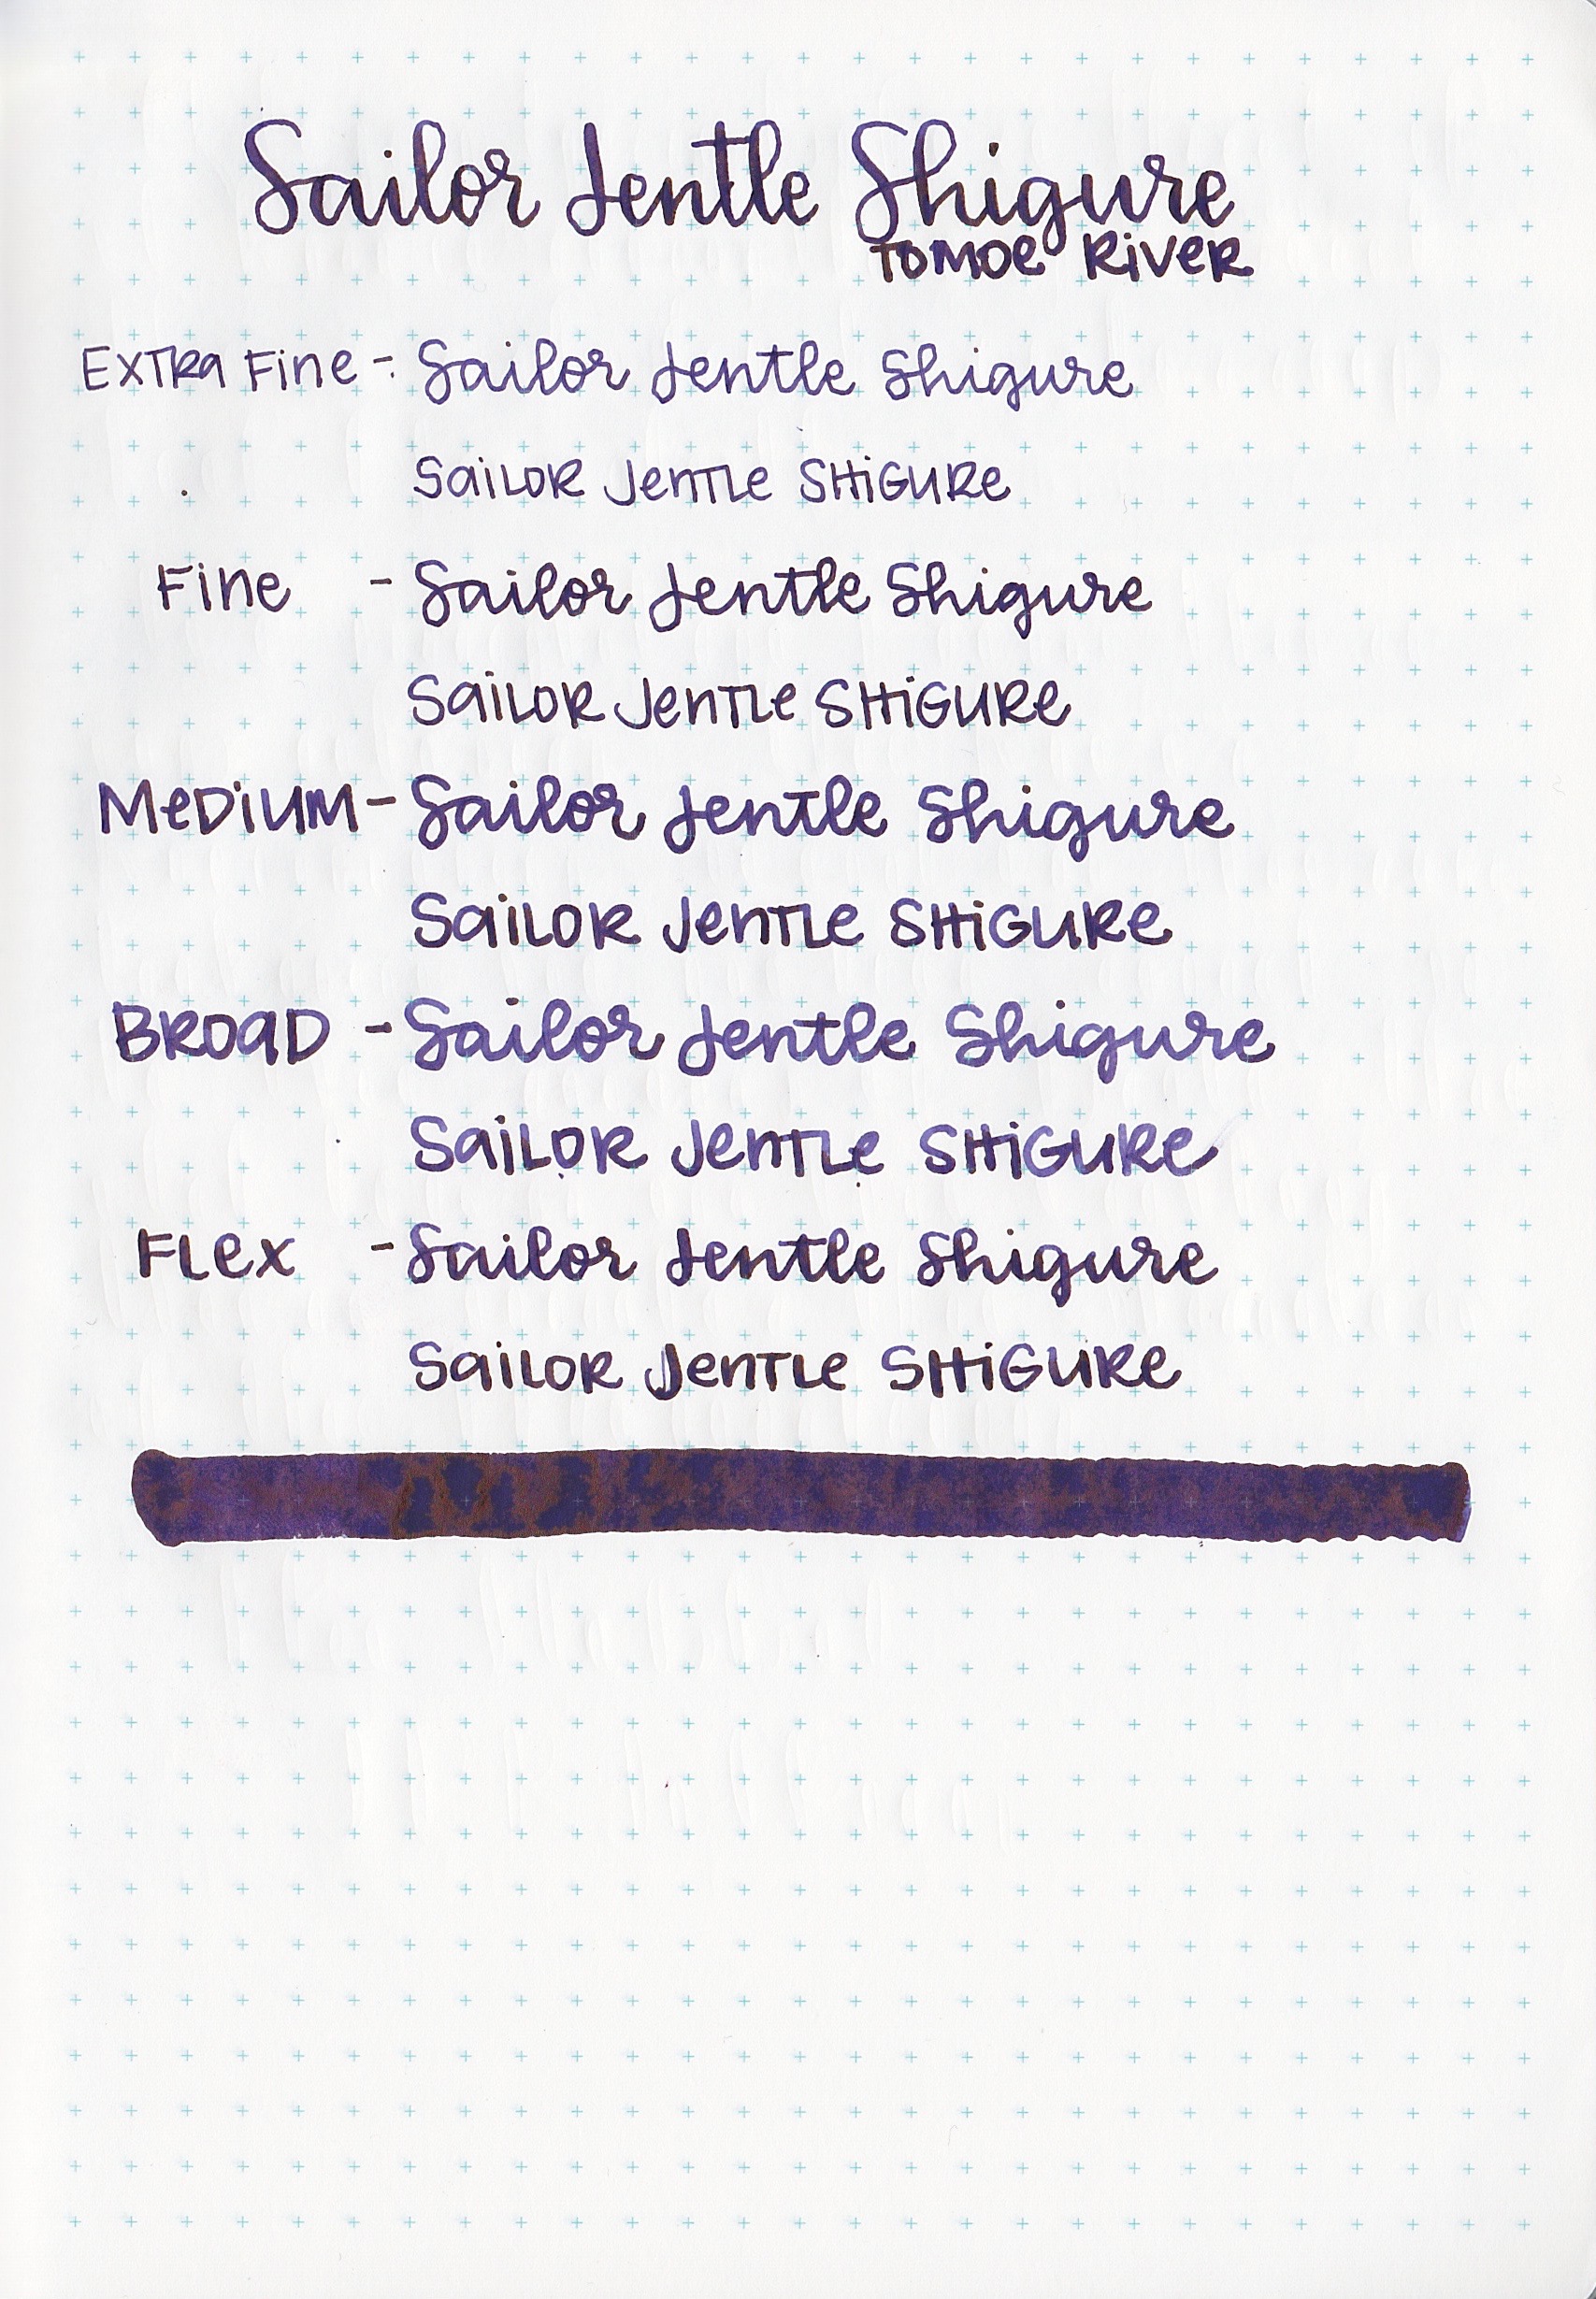 Sailor Jentle Shigure
Tomoe River
Extra Fine - Sailor Jentle Shigure
Sailor Jentle Shigure
Fine - Sailor Jentle Shigure
Sailor Jentle Shigure
Medium - Sailor Jentle Shigure
Sailor Jentle Shigure
Broad - Sailor Jentle Shigure
Sailor Jentle Shigure
Flex - Sailor Jentle Shigure
Sailor Jentle Shigure